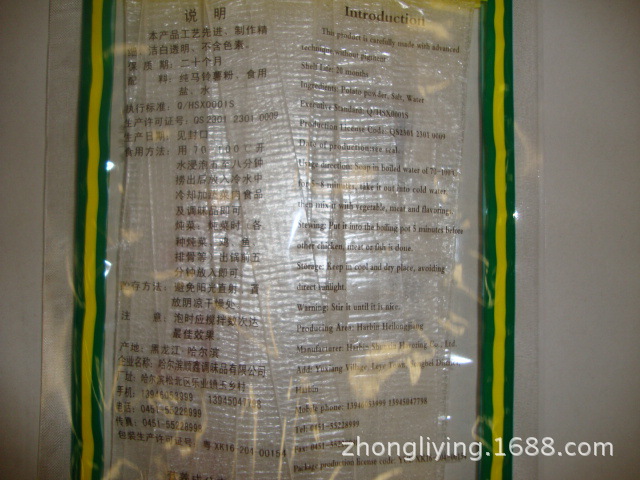 说 明
本产品工艺先进、制作精
洁白透明、不含色素。
保 质 期：二十个月
配 料：纯马铃薯粉、食用
盐、水
执行标准：Q/HSX0001S
生产许可证号：QS2301 2301 0009
生产日期：见封口
食用方法：用 70-100℃ 开
水浸泡五至八分钟
捞出后放入冷水中
冷却加蔬菜肉食品
及调味品即可
炖菜：炖菜时 各
种炖菜 鸡 鱼
排骨等 出锅前五
分钟放入即可
贮存方法：避免阳光直射 置
放阴凉干燥处
注 意：泡时应搅拌数次达
最佳效果
产地：黑龙江·哈尔滨
企业名称：哈尔滨顺鑫调味品有限公司
地址：哈尔滨松北区乐业镇玉乡村
手机：13946059999 13945047798
电话：0451-55228999
传真：0451-55228999
包装生产许可证号 粤XK16-201-00154
Introduction
This product is carefully made with advanced
technique without pigment
Shelf Life: 20 months
Ingredients: Potato powder, Salt, Water
Executive Standard: Q/HSX0001S
Production License Code: QS2301 2301 0009
Date of production: see seal.
Usage direction: Soap in boiled water of 70-100℃
for 5-8 minutes, take it out into cold water,
then mix it with vegetable, meat and flavorings.
Stewing: Put it into the boiling pot 5 minutes before
other chicken, meat or fish is done.
Storage: Keep in cool and dry place, avoiding
direct sunlight.
Warning: Stir it until it is nice.
Producing Area: Harbin Heilongjiang
Manufacturer: Harbin Shunxin Flavoring Co., Ltd
Add: Yuxiang Village, Leye Town, Songbei District,
Harbin
Mobile phone: 13946059999 13945047798
Tel: 0451-55228999
Fax: 0451-55228999
Package production license code: Yue XK16-201-00154
zhongliying.1688.com